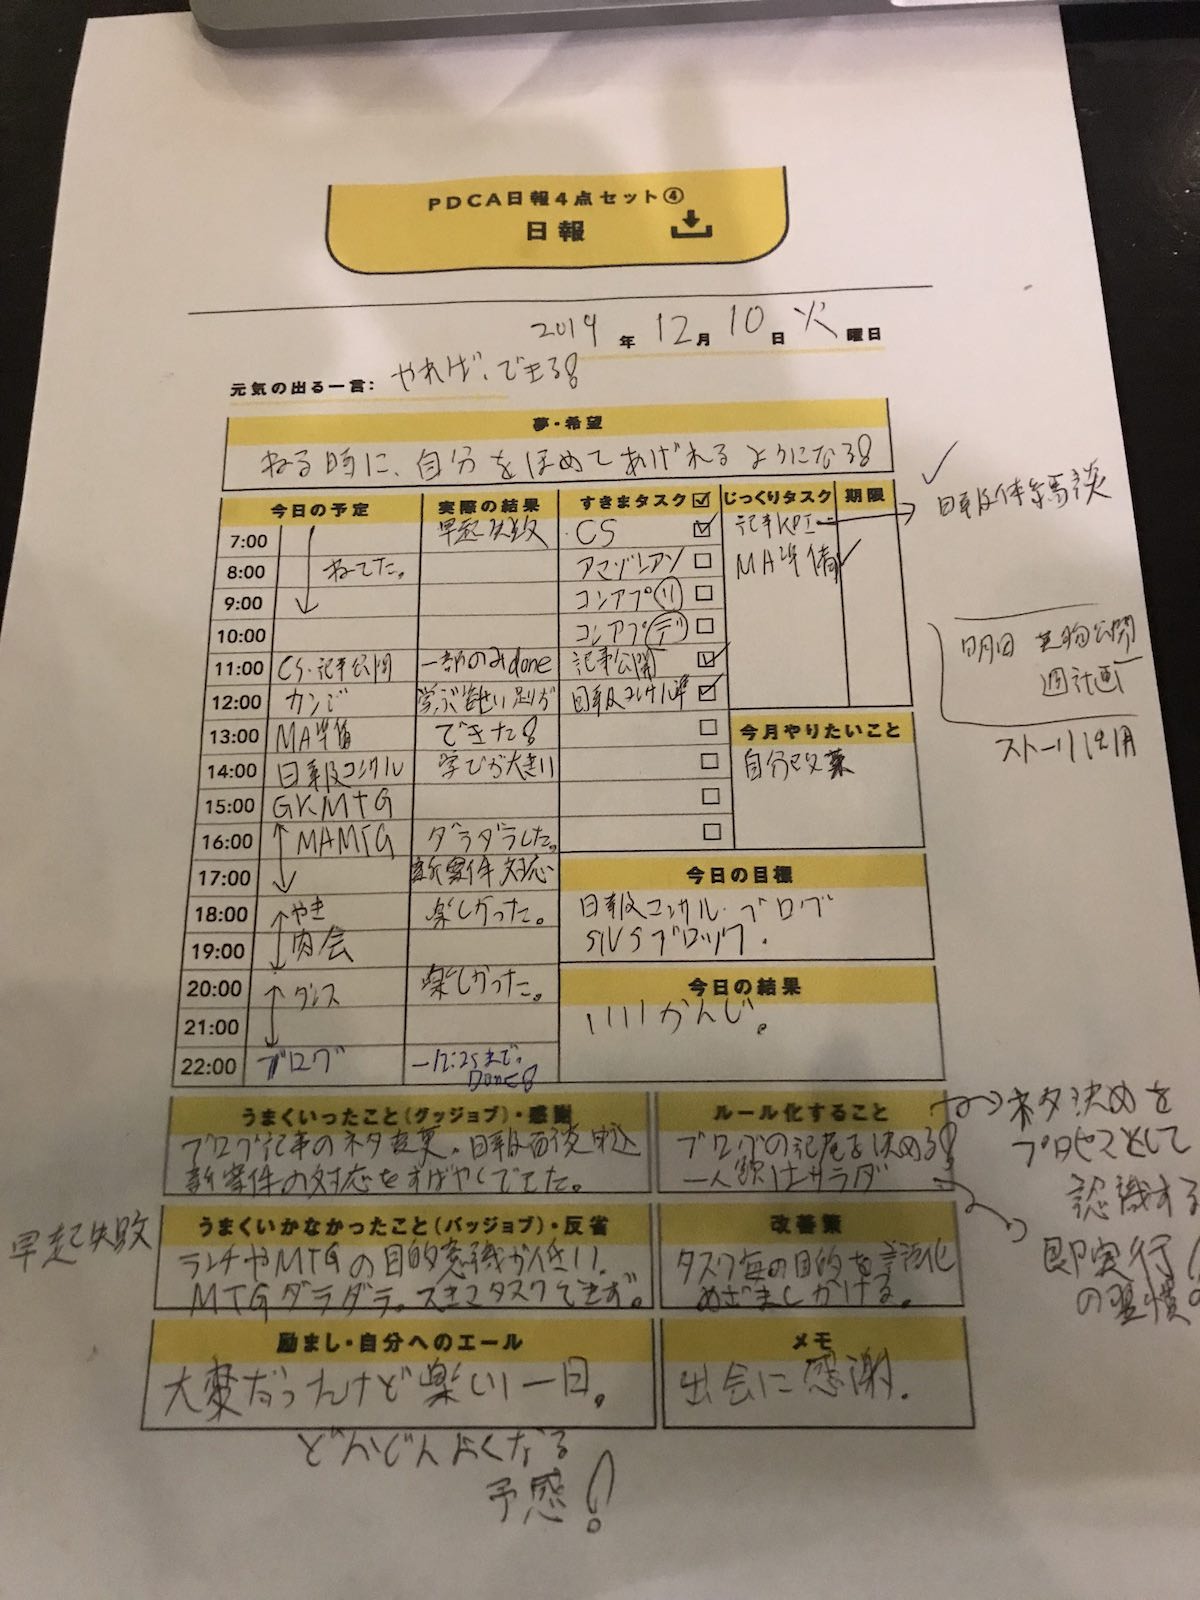 PDCA日報4点セット④
日報
2019年12月10日火曜日
元気の出る一言: やれば、できる!
夢・希望
ねる時に、自分をほめてあげれるようになる!
今日の予定 実際の結果 すきまタスク☑ じっくりタスク 期限
7:00 早起失敗 CS ☑ 記事KPI → 日報体系 談
8:00 ねてた。 アマゾレアソ □ MA準備 ✓
9:00 コンアプ(リ) □
10:00 コンアプ(デ) □
11:00 CS・記事公開 一部のみdone 記事公開 ☑
明日 公開
週計画
12:00 カンジ 日報コンサル準 ☑
13:00 MA準備 できた! □ 今月やりたいこと
ストーリ
14:00 日報コンサル 学びが大きい □ 自分改革
15:00 GKMTG □
16:00 MAMTG ダラダラした。 □
17:00 新案件対応 今日の目標
18:00 やき 楽しかった。 日報コンサル・ブログ
19:00 肉会 ブロック.
20:00 ダンス 楽しかった。 今日の結果
21:00 いいかんじ。
22:00 ブログ 12:25まで。
Done!
うまくいったこと(グッジョブ)・感謝
ブログ記事のネタ変更。日報面談申込
新案件の対応をすばやくできた。
ルール化すること
ブログの記尾を決める!
はサラダ
ネタ決めを
プロセスとして
認識する
即実行
の習慣の
うまくいかなかったこと(バッジョブ)・反省
早起失敗
ランチやMTGの目的意識が低い。
MTGダラダラ。スキマタスクできず。
改善策
タスク毎の目的を言語化
めざましかける。
励まし・自分へのエール
大変だったけど楽しい一日。
どんどんよくなる
予感!
メモ
出会に感謝.